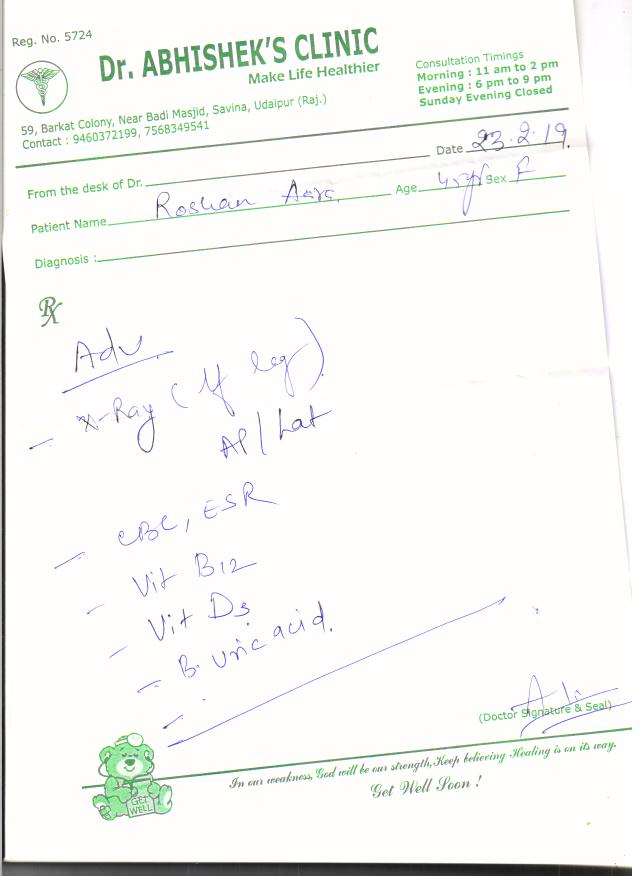 Reg. No. 5724
Dr. ABHISHEK'S CLINIC
Make Life Healthier
59, Barkat Colony, Near Badi Masjid, Savina, Udaipur (Raj.)
Contact : 9460372199, 7568349541
Consultation Timings
Morning : 11 am to 2 pm
Evening : 6 pm to 9 pm
Sunday Evening Closed
Date 23.2.19.
From the desk of Dr.
Patient Name Roshan Age Sex F
Diagnosis :
Rx
Adv.
- X-Ray ( leg)
AP/Lat
- CBC, ESR
- Vit B12
- Vit D3
- B. uric acid.
(Doctor Signature & Seal)
GET WELL
In our weakness, God will be our strength, Keep believing Healing is on its way.
Get Well Soon !